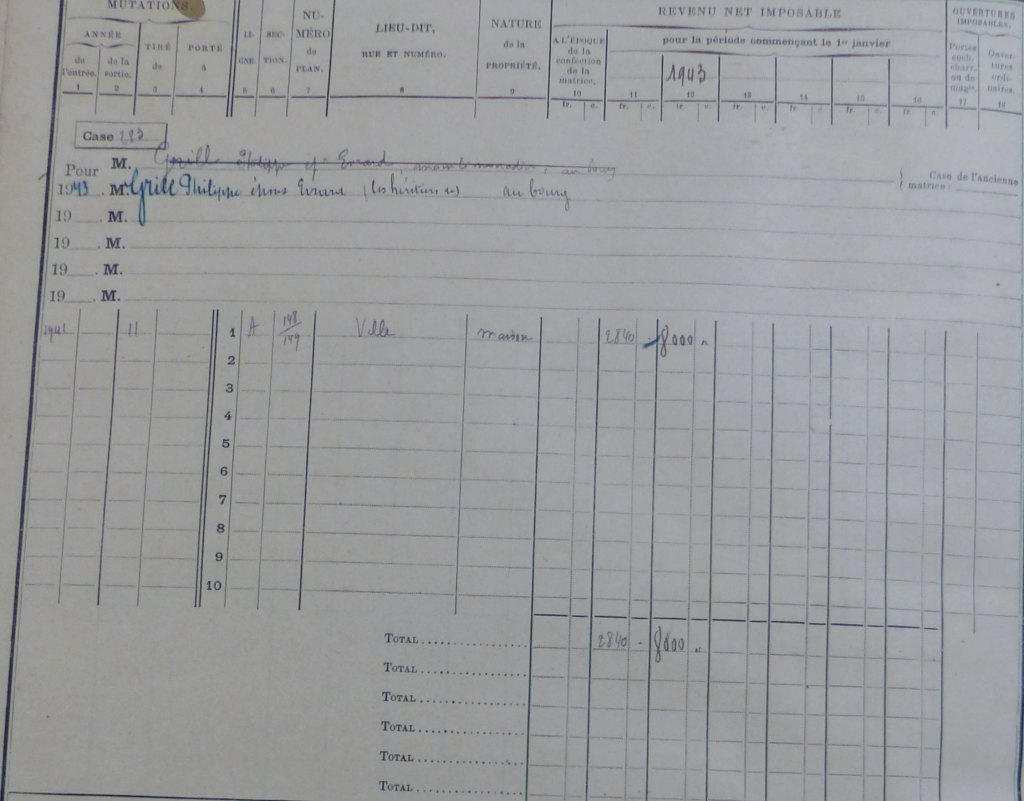 MUTATIONS.
ANNÉE
de l'entrée.
de la sortie.
TIRÉ de
PORTÉ à
LI-GNE.
SEC-TION.
NU-MÉRO de PLAN.
LIEU-DIT,
RUE ET NUMÉRO.
NATURE de la PROPRIÉTÉ.
REVENU NET IMPOSABLE
A L'ÉPOQUE de la confection de la matrice.
pour la période commençant le 1er janvier
1943
OUVERTURES IMPOSABLES.
Portes coch. charr. ou de magas.
Ouver-tures ordi-naires.
1 2 3 4 5 6 7 8 9 10 11 12 13 14 15 16 17 18
fr. c. fr. c. fr. c. fr. c. fr. c. fr. c. fr. c.
Case 223
Pour M. Grill Philippe ép. Evrard, au bourg
Case de l'ancienne matrice :
1943. M. Grill Philippe Evrard (les héritiers de) au bourg
19 . M.
19 . M.
19 . M.
19 . M.
1941 11 1 A 148/149 Ville maison 2840 - 8000 "
2
3
4
5
6
7
8
9
10
TOTAL 2840 - 8000 "
TOTAL
TOTAL
TOTAL
TOTAL
TOTAL